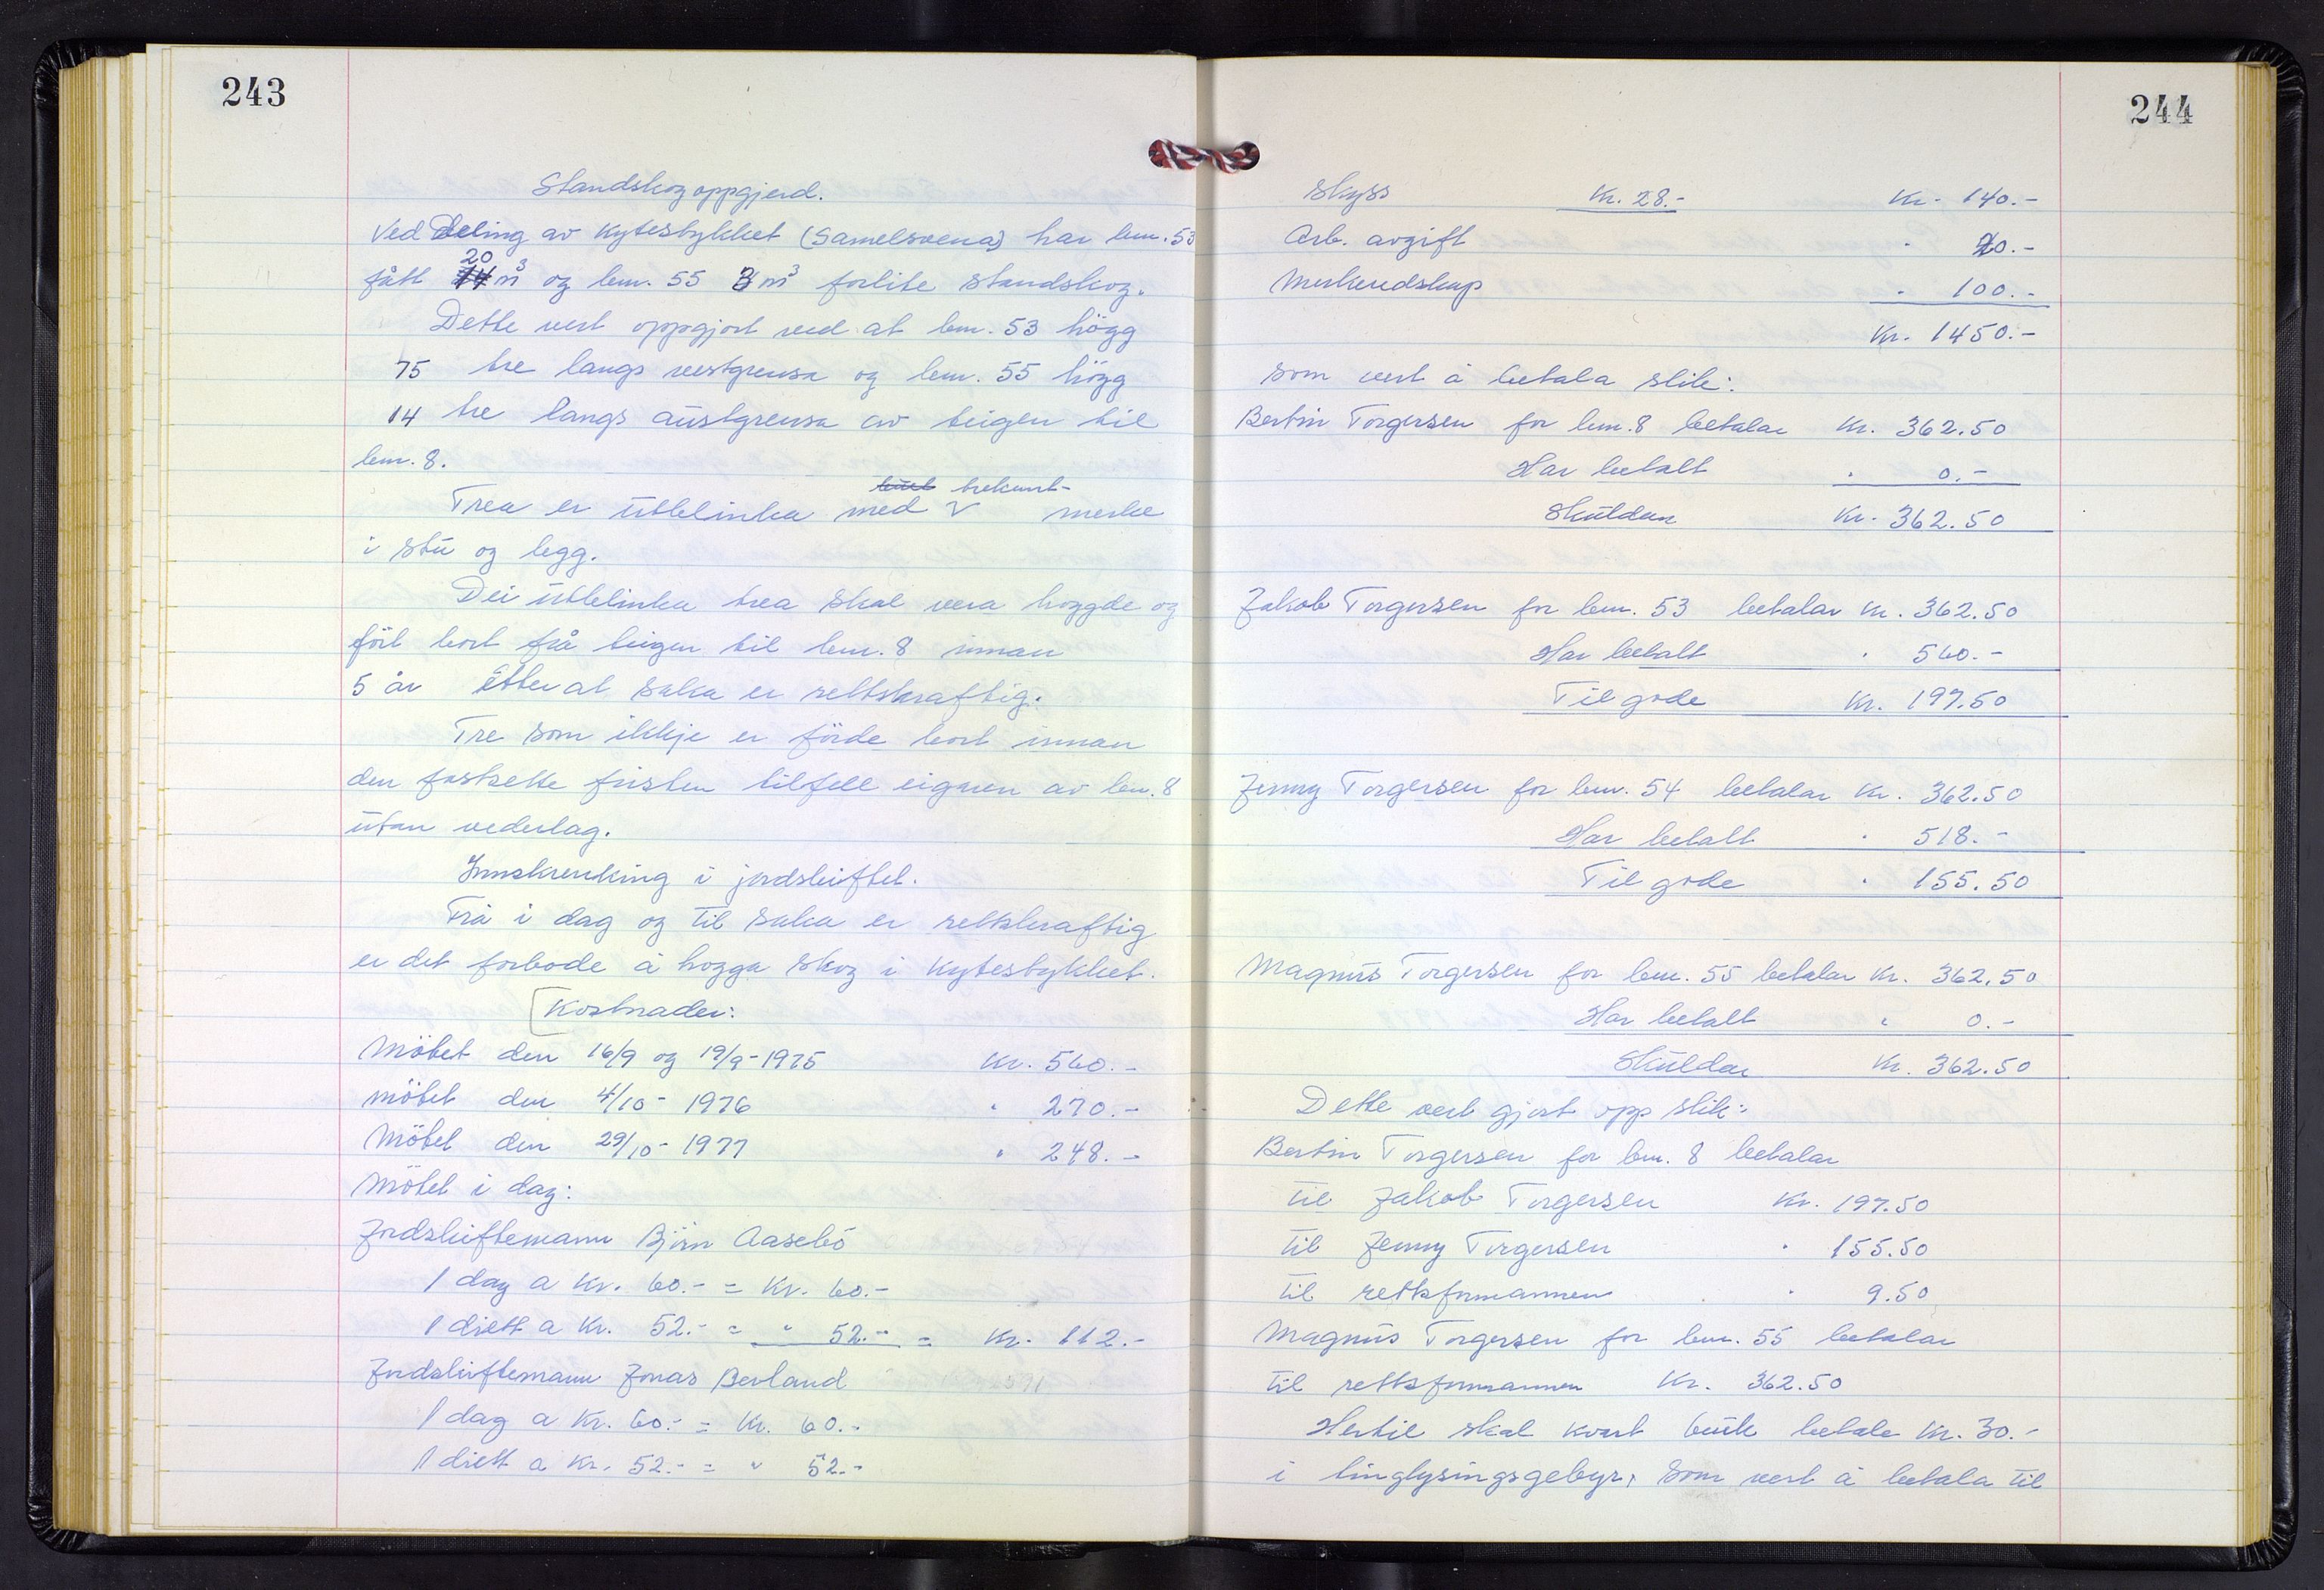 243
Standskogoppgjerd.
Ved deling av Kytestykket (Samelsvena) har bnr. 53
20
fått 14 m³ og bnr. 55 3 m³ forlite standskog.
Dette vert oppgjort ved at bnr. 53 högg
75 tre langs vestgrensa og bnr. 55 högg
14 tre langs austgrensa av teigen til
bnr. 8.
trekant-
Trea er utblinka med V merke
i stu og legg.
Dei utblinka trea skal vera hoggde og
fört bort frå teigen til bnr. 8 innan
5 år etter at saka er rettskraftig.
Tre som ikkje er förde bort innan
den fastsette fristen tilfell eigaren av bnr. 8
utan vederlag.
Innskrenking i jordskiftet.
Frå i dag og til saka er rettskraftig
er det forbode å hogga skog i Kytestykket.
Kostnader:
Mötet den 16/9 og 19/9-1975 Kr. 560.-
mötet den 4/10- 1976 " 270.-
Mötet den 29/10- 1977 " 248.-
Mötet i dag:
Jordskiftemann Björn Aasebö
1 dag a Kr. 60.- = Kr. 60.-
1 diett a Kr. 52.- = " 52.- = Kr. 112.-
Jordskiftemann Jonas Berland
1 dag a Kr. 60.- = Kr. 60.-
1 diett a Kr. 52.- = " 52.-
244
Skyss Kr. 28.- Kr. 140.-
Arb. avgift " 20.-
Merkeredskap " 100.-
Kr. 1450.-
som vert å betala slik:
Bertin Torgersen for bnr. 8 betalar Kr. 362.50
Har betalt " 0.-
Skuldar Kr. 362.50
Jakob Torgersen for bnr. 53 betalar Kr. 362.50
Har betalt " 560.-
Til gode Kr. 197.50
Jenny Torgersen for bnr. 54 betalar Kr. 362.50
Har betalt " 518.-
Til gode " 155.50
Magnus Torgersen for bnr. 55 betalar Kr. 362.50
Har betalt " 0.-
Skuldar Kr. 362.50
Dette vert gjort opp slik:
Bertin Torgersen for bnr. 8 betalar
til Jakob Torgersen Kr. 197.50
til Jenny Torgersen " 155.50
til rettsformannen " 9.50
Magnus Torgersen for bnr. 55 betalar
til rettsformannen Kr. 362.50
Hertil skal kvart bruk betale Kr. 30.-
i tinglysingsgebyr, som vert å betala til